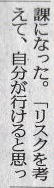 課になった。「リスクを考
えて、自分が行けると思っ